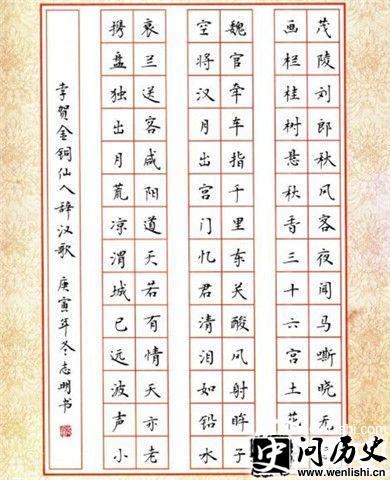 茂陵刘郎秋风客夜闻马嘶晓无
画栏桂树悬秋香三十六宫土花
魏官牵车指千里东关酸风射眸子
空将汉月出宫门忆君清泪如铅水
衰兰送客咸阳道天若有情天亦老
携盘独出月荒凉渭城已远波声小
李贺金铜仙人辞汉歌 庚寅年冬志明书
问历史
www.wenlishi.cn